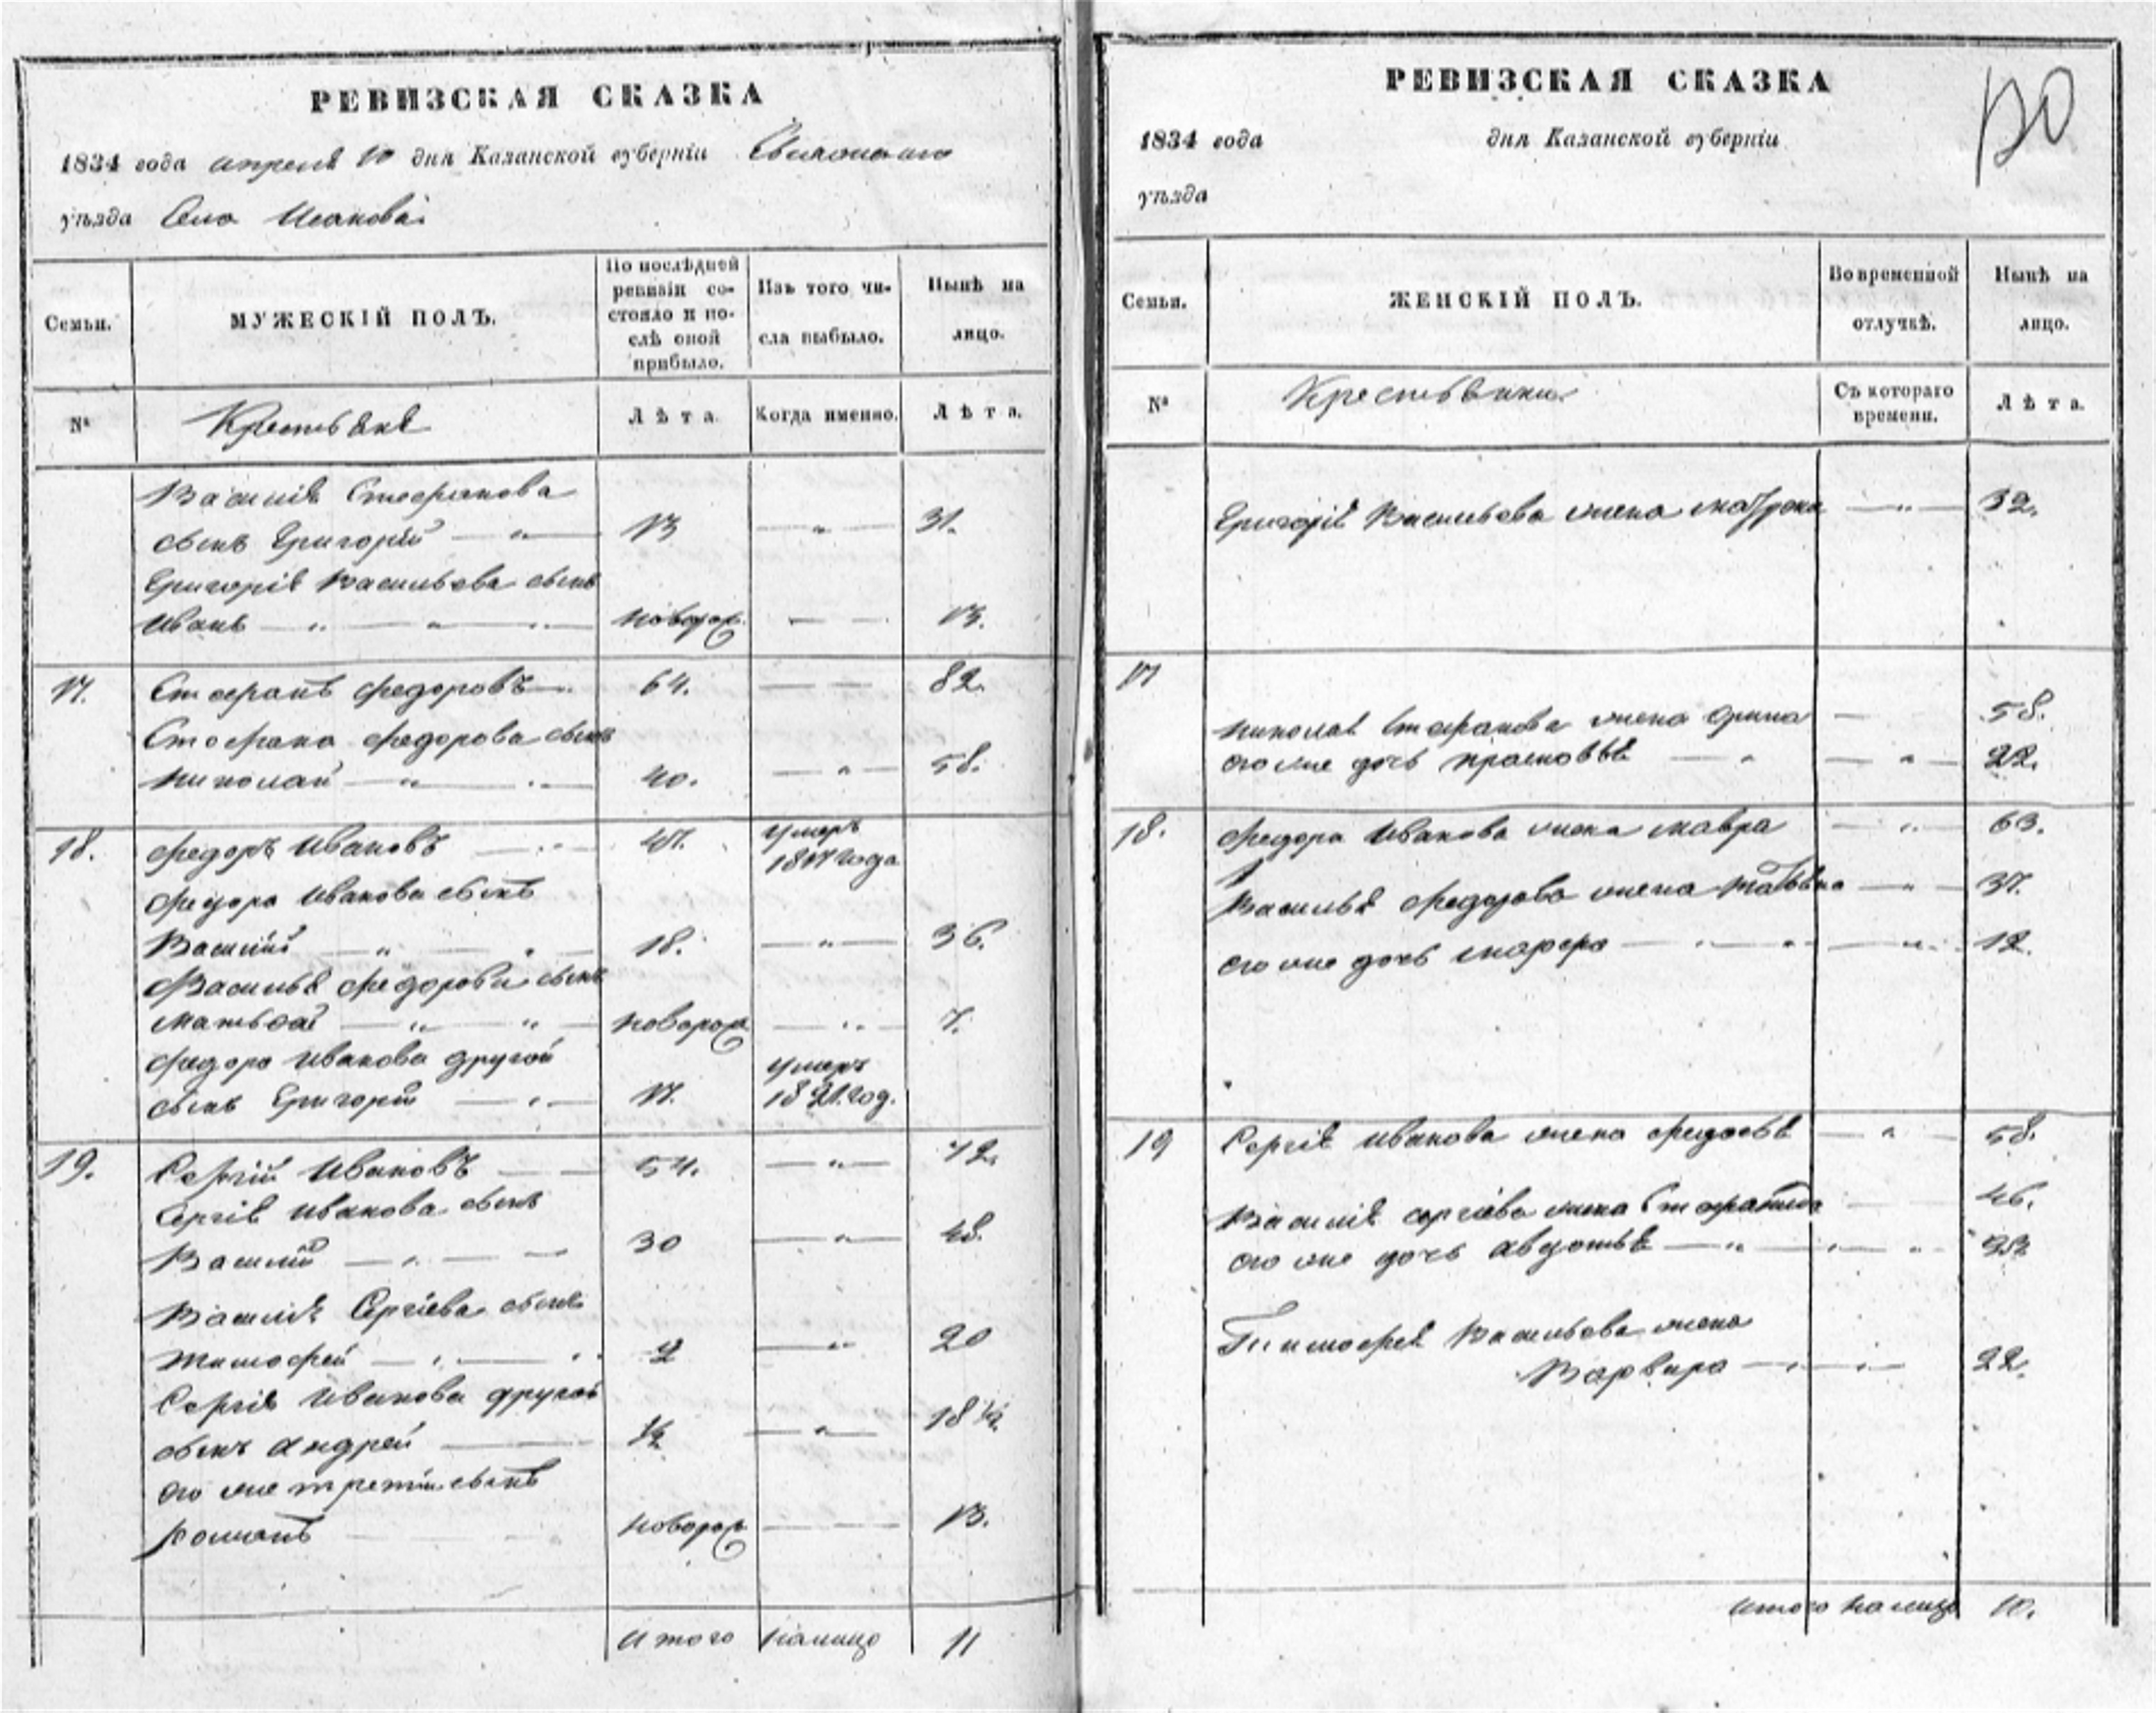 РЕВИЗСКАЯ СКАЗКА
1834 года апреля 10 дня Казанской губерніи
уѣзда Села
Семьи.
МУЖЕСКІЙ ПОЛЪ.
По послѣдней ревизіи состояло и послѣ оной прибыло.
Изъ того числа выбыло.
Нынѣ на лицо.
№
Крестьяне
Лѣта.
Когда именно.
Лѣта.
Василія Степанова
сынъ Григорій 13 31.
Григорія Васильева сынъ
Иванъ новорож. 13.
17. Степанъ Федоровъ 64. 82.
Степана Федорова сынъ
Николай 40. 58.
18. Федоръ Ивановъ 47. умеръ 1817 года
Федора Иванова сынъ
Василій 18. 36.
Василья Федорова сынъ
Матвей новорож 7.
Федора Иванова другой
сынъ Григорій 17. умеръ 1821. год.
19. Сергій Ивановъ 54. 72.
Сергія Иванова сынъ
Василій 30 48.
Василія Сергіева сынъ
Тимофей 2 20
Сергія Иванова другой
сынъ Андрей ½ 18 ½.
его же третій сынъ
Романъ новорож 13.
Итого налицо 11
РЕВИЗСКАЯ СКАЗКА
130
1834 года дня Казанской губерніи
уѣзда
Семьи.
ЖЕНСКІЙ ПОЛЪ.
Во временной отлучкѣ.
Нынѣ на лицо.
№
Съ котораго времени.
Лѣта.
Григорія Васильева жена Матрена 32.
17
Николая Степанова жена Орина 58.
его же дочь Прасковья 22.
18. Федора Иванова жена Мавра 63.
Василья Федорова жена Татьяна 37.
его же дочь Марфа 12.
19 Сергія Иванова жена Федосья 58.
Василія Сергіева жена Степанида 46.
его же дочь Авдотья
Тимофея Васильева жена
Варвара 22.
Итого налицо 10.